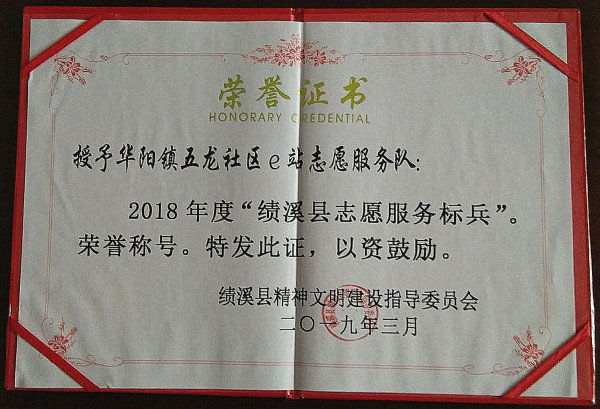 荣誉证书
HONORARY CREDENTIAL
授予华阳镇五龙社区e站志愿服务队：
2018年度“绩溪县志愿服务标兵”。
荣誉称号。特发此证，以资鼓励。
绩溪县精神文明建设指导委员会
二〇一九年三月